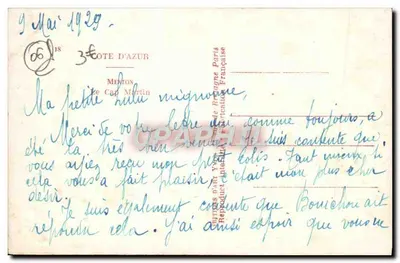 9 Mai 1929
06
3€
COTE D'AZUR
MENTON
Le Cap Martin
Ma petite Lulu mignonne,
Merci de votre lettre qui, comme toujours, a
été la très bien venue. Je suis contente que
vous ayiez reçu mon petit colis. Tant mieux si
cela vous a fait plaisir, c'était mon plus cher
désir.
Je suis également contente que Bouichou ait
répondu cela. J'ai ainsi espoir que vous ne